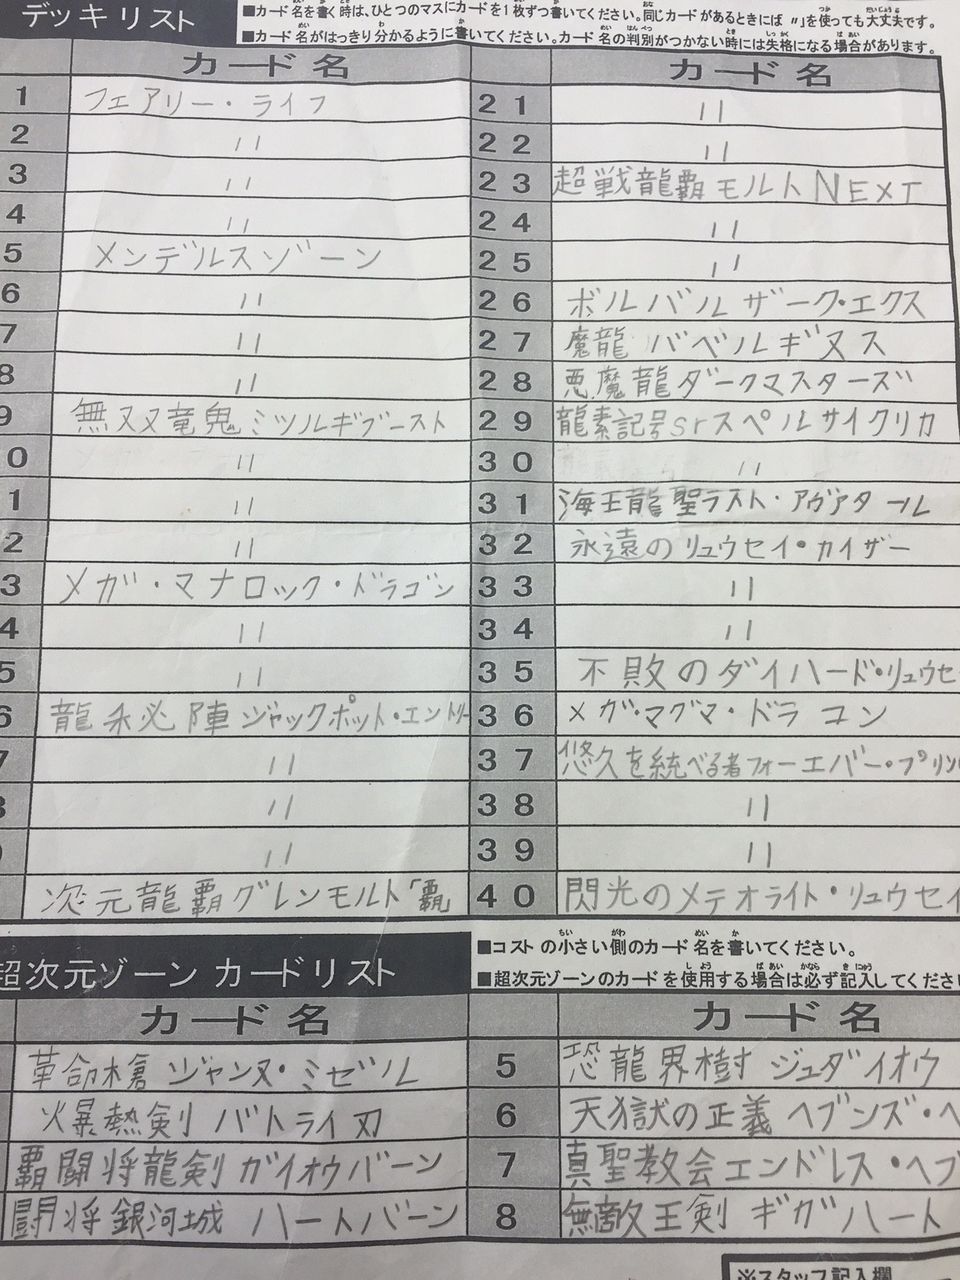 デッキリスト
■カード名を書く時は、ひとつのマスにカードを1枚ずつ書いてください。同じカードがあるときには〃」を使っても大丈夫です。
■カード名がはっきり分かるように書いてください。カード名の判別がつかない時には失格になる場合があります。
カード名
1 フェアリー・ライフ
2 〃
3 〃
4 〃
5 メンデルスゾーン
6 〃
7 〃
8 〃
9 無双竜鬼ミツルギブースト
0 〃
1 〃
2 〃
3 メガ・マナロック・ドラゴン
4 〃
5 〃
6 龍秘陣ジャックポット・エントリー
7 〃
8 〃
〃
次元龍覇グレンモルト「覇」
カード名
21 〃
22 〃
23 超戦龍覇モルトNEXT
24 〃
25 〃
26 ボルバルザーク・エクス
27 魔龍バベルギヌス
28 悪魔龍ダークマスターズ
29 龍素記号srスペルサイクリカ
30 〃
31 海王龍聖ラスト・アヴァタール
32 永遠のリュウセイ・カイザー
33 〃
34 〃
35 不敗のダイハード・リュウセ
36 メガ・マグマ・ドラゴン
37 悠久を統べる者フォーエバー・プリン
38 〃
39 〃
40 閃光のメテオライト・リュウセイ
超次元ゾーン カードリスト
■コストの小さい側のカード名を書いてください。
■超次元ゾーンのカードを使用する場合は必ず記入してくださ
カード名
革命槍ジャンヌ・ミゼル
爆熱剣バトライ刃
覇闘将龍剣ガイオウバーン
闘将銀河城ハートバーン
カード名
5 恐龍界樹ジュダイオウ
6 天獄の正義ヘブンズ・ヘ
7 真聖教会エンドレス・ヘブ
8 無敵王剣ギガハート
※スタッフ記入欄